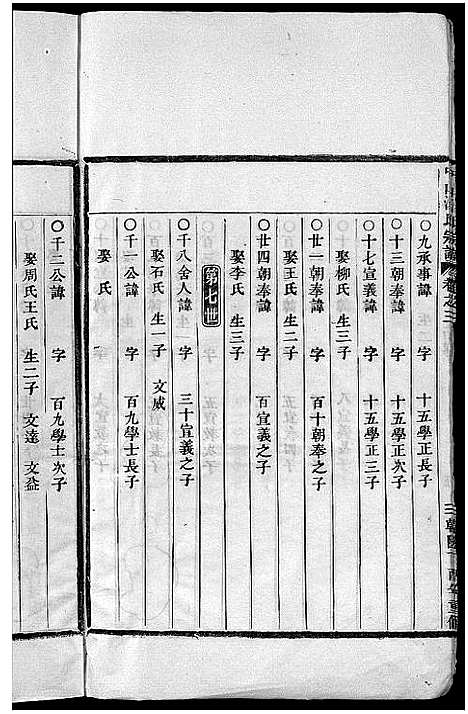 氏宗譜 卷之三
〇九承事諱 字 十五學正長子
〇十三朝奉諱 字 十五學正次子
〇十七宣義諱 字 十五學正三子
娶柳氏 生三子
〇廿一朝奉諱 字 百十朝奉之子
娶王氏 生二子
〇廿四朝奉諱 字 百宣義之子
娶李氏 生三子
第七世
〇千八舍人諱 字 三十宣義之子
娶石氏 生一子 文威
〇千一公諱 字 百九學士長子
娶 氏
〇千二公諱 字 百九學士次子
娶周氏王氏 生二子 文達 文益